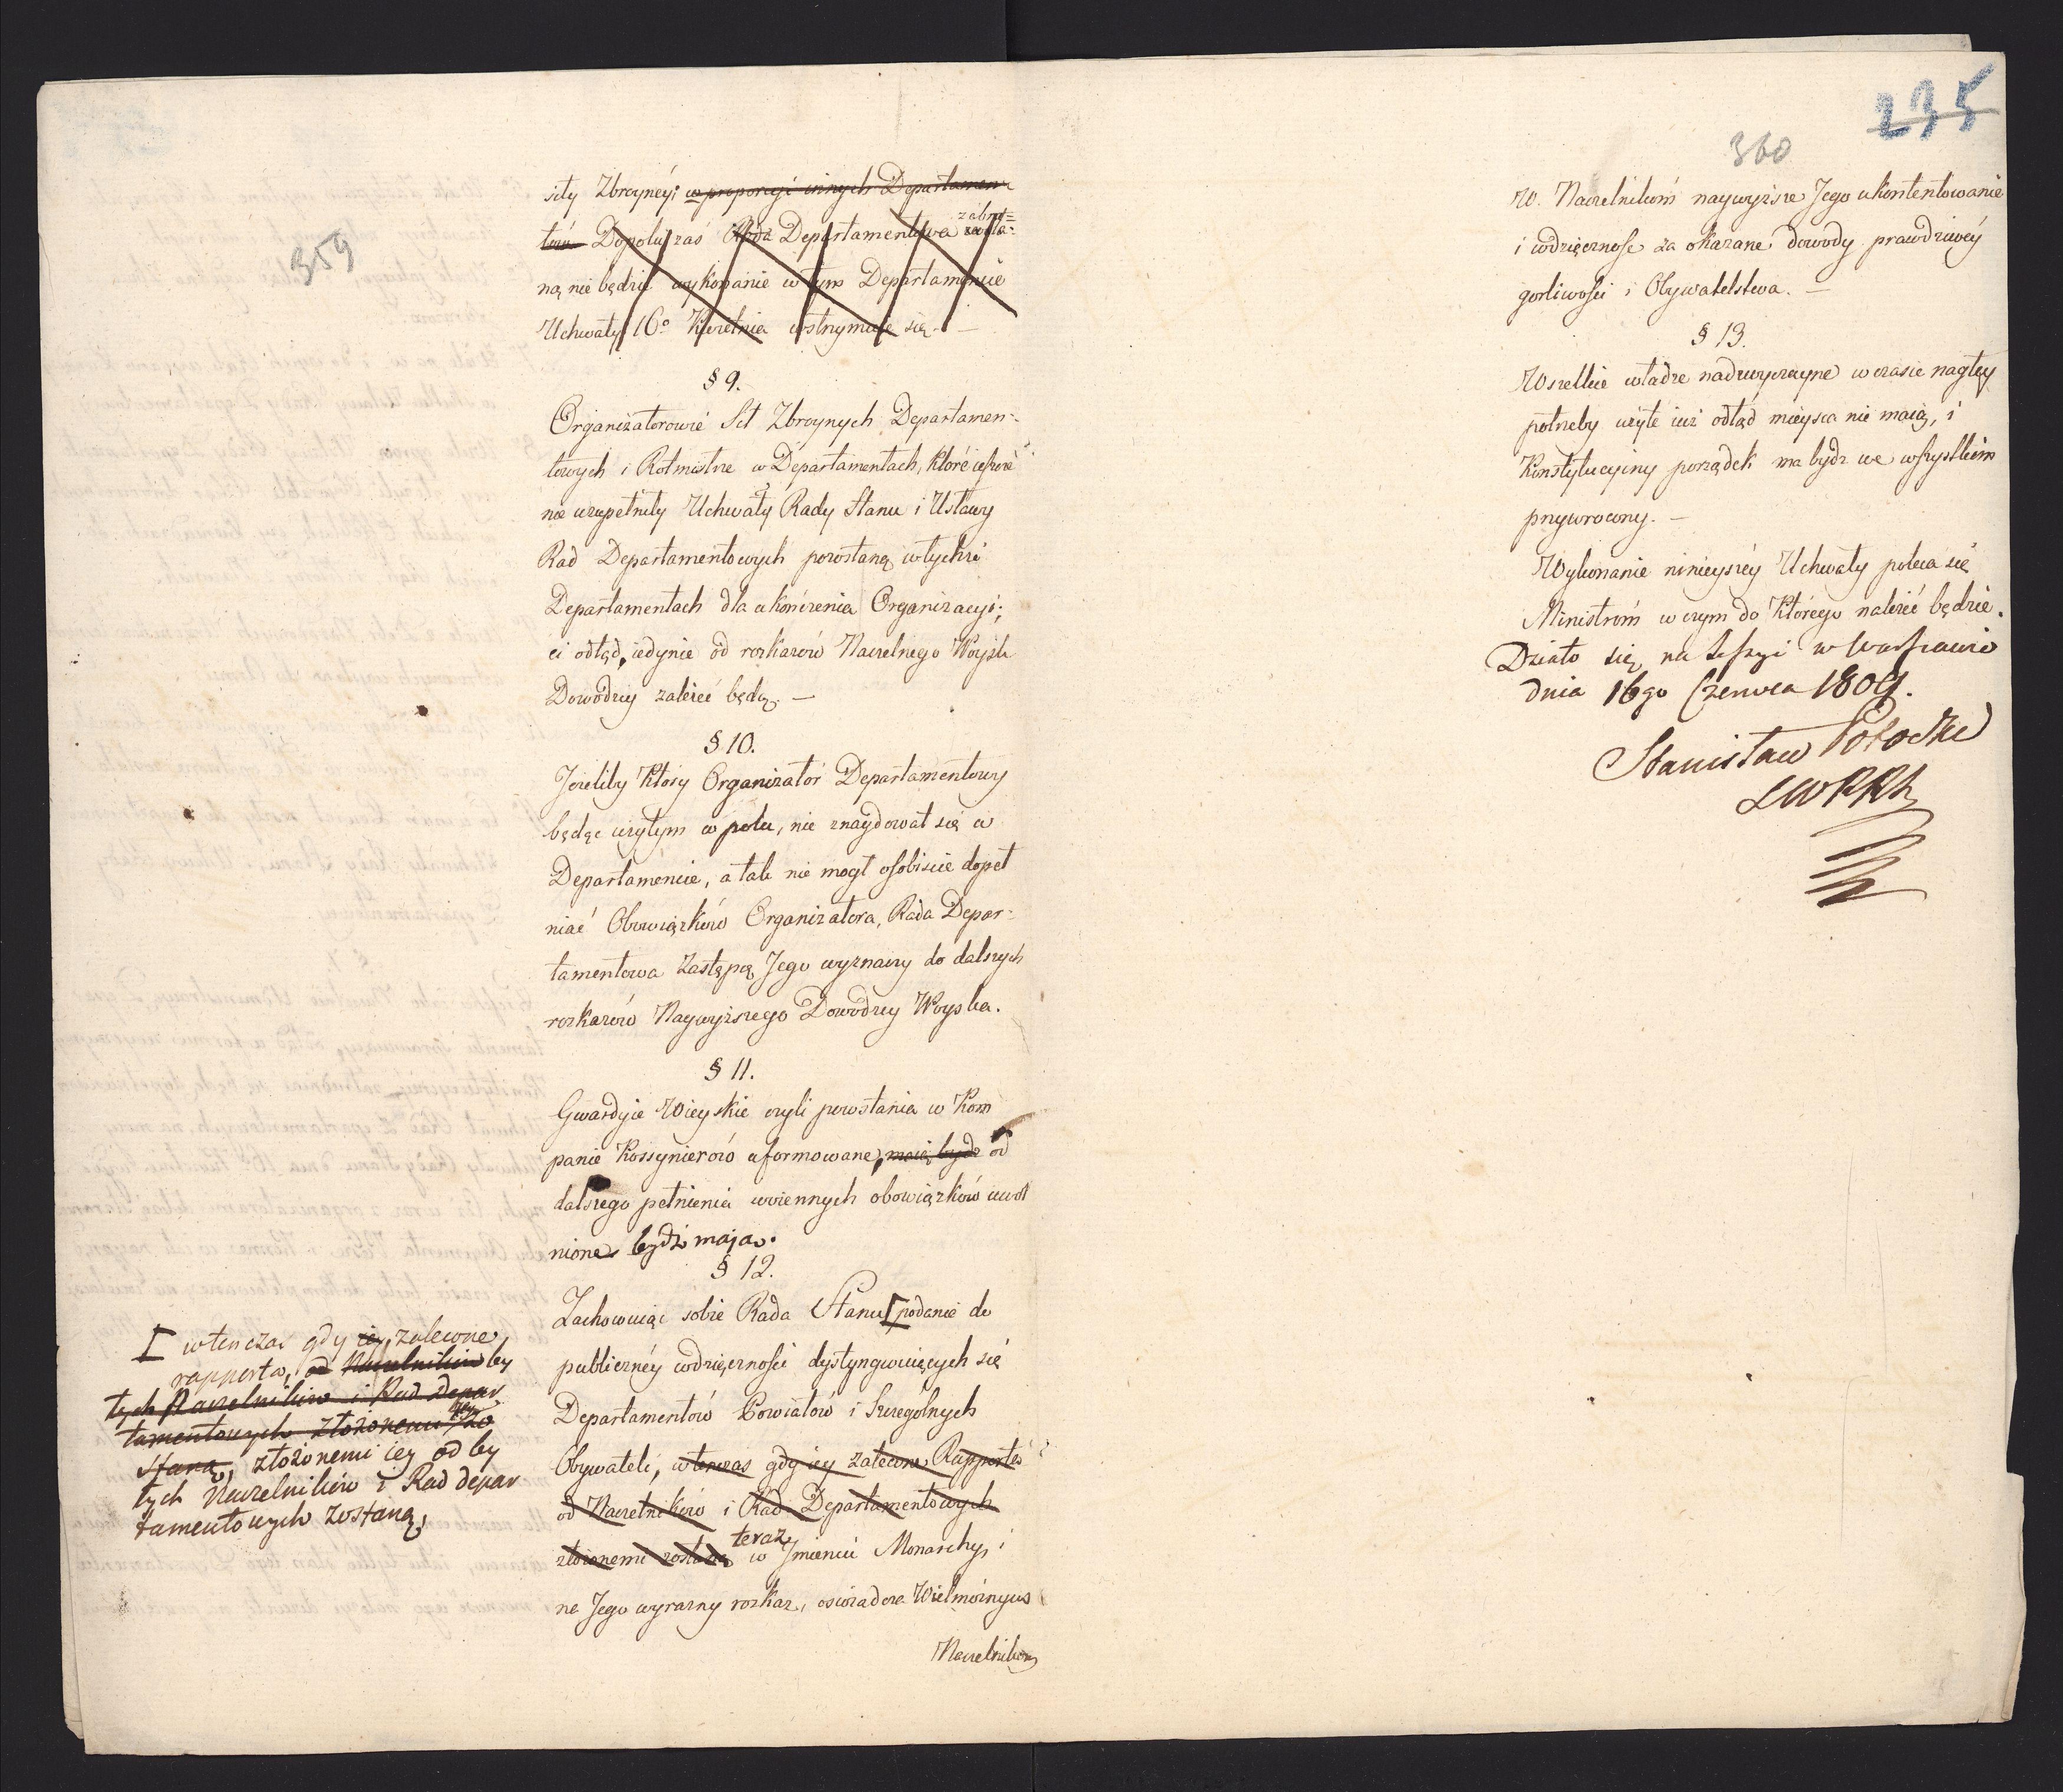 359
siły Zbroyney; w proporcyi innych Departamen
tów Dopoki zaś Rada Departamentowa zabra-
ną nie będzie wykonanie w tym Departamencie
Uchwały 16º Kwietnia wstrzymuie się. —
§ 9.
Organizatorowie Sił Zbroynych Departamen-
towych i Rotmistrze w Departamentach, które ieszcze
nie uzupełniły Uchwały Rady Stanu i Ustawy
Rad Departamentowych pozostaną w tychże
Departamentach dla ukończenia Organizacyi;
ci odtąd, iedynie od rozkazów Naczelnego Woysk
Dowódzcy zależeć będą. —
§ 10.
Jeżeliby Któży Organizator Departamentowy
będąc użytym w polu, nie znaydował się w
Departamencie, a tak nie mogł osobiscie dopeł
niać Obowiązków Organizatora, Rada Depar-
tamentowa Zastępcę Jego wyznaczy do dalszych
rozkazów Naywyższego Dowódzcy Woyska.
§ 11.
Gwardyie Wieyskie czyli powstania w Kom
panie Kossynierów uformowane, maią bydź od
dalszego pełnienia woiennych obowiązków uwol
nione bydź maja.
§ 12.
Zachowuiąc sobie Rada Stanu [ podanie do
publiczney wdzięczności dystyngwuiących się
Departamentów Powiatów i Szczególnych
Obywateli, wtenczas gdy iey zalecone Rapporta
od Naczelników i Rad Departamentowych
złożonemi zostaną teraz w Jmieniu Monarchy, i
na Jego wyrazny rozkaz, oświadcza Wielmożnym
Naczelnikom
[ wtenczas gdy iey zalecone
rapporta, od Naczelników by
tych Naczelników i Rad depar
tamentowych złożonemi iey zo
staną, złożonemi iey od by
tych Naczelników i Rad depar
tamentowych zostaną,
235
360
W. Naczelnikom naywyższe Jego ukontentowanie
i wdzięczność za okazane dowody prawdziwéy
gorliwości i Obywatelstwa. —
§ 13.
Wszelkie władze nadzwyczayne w czasie nagłey
potrzeby użyte iuż odtąd mieysca nie maią, i
Konstytucyiny porządek ma bydz we wszystkim
przywrocony. —
Wykonanie ninieyszéy Uchwały poleca się
Ministróm w czym do Którego należéć będzie.
Działo się na Sessyi w Warszawie
dnia 16go Czerwca 1809.
Stanisław Potocki